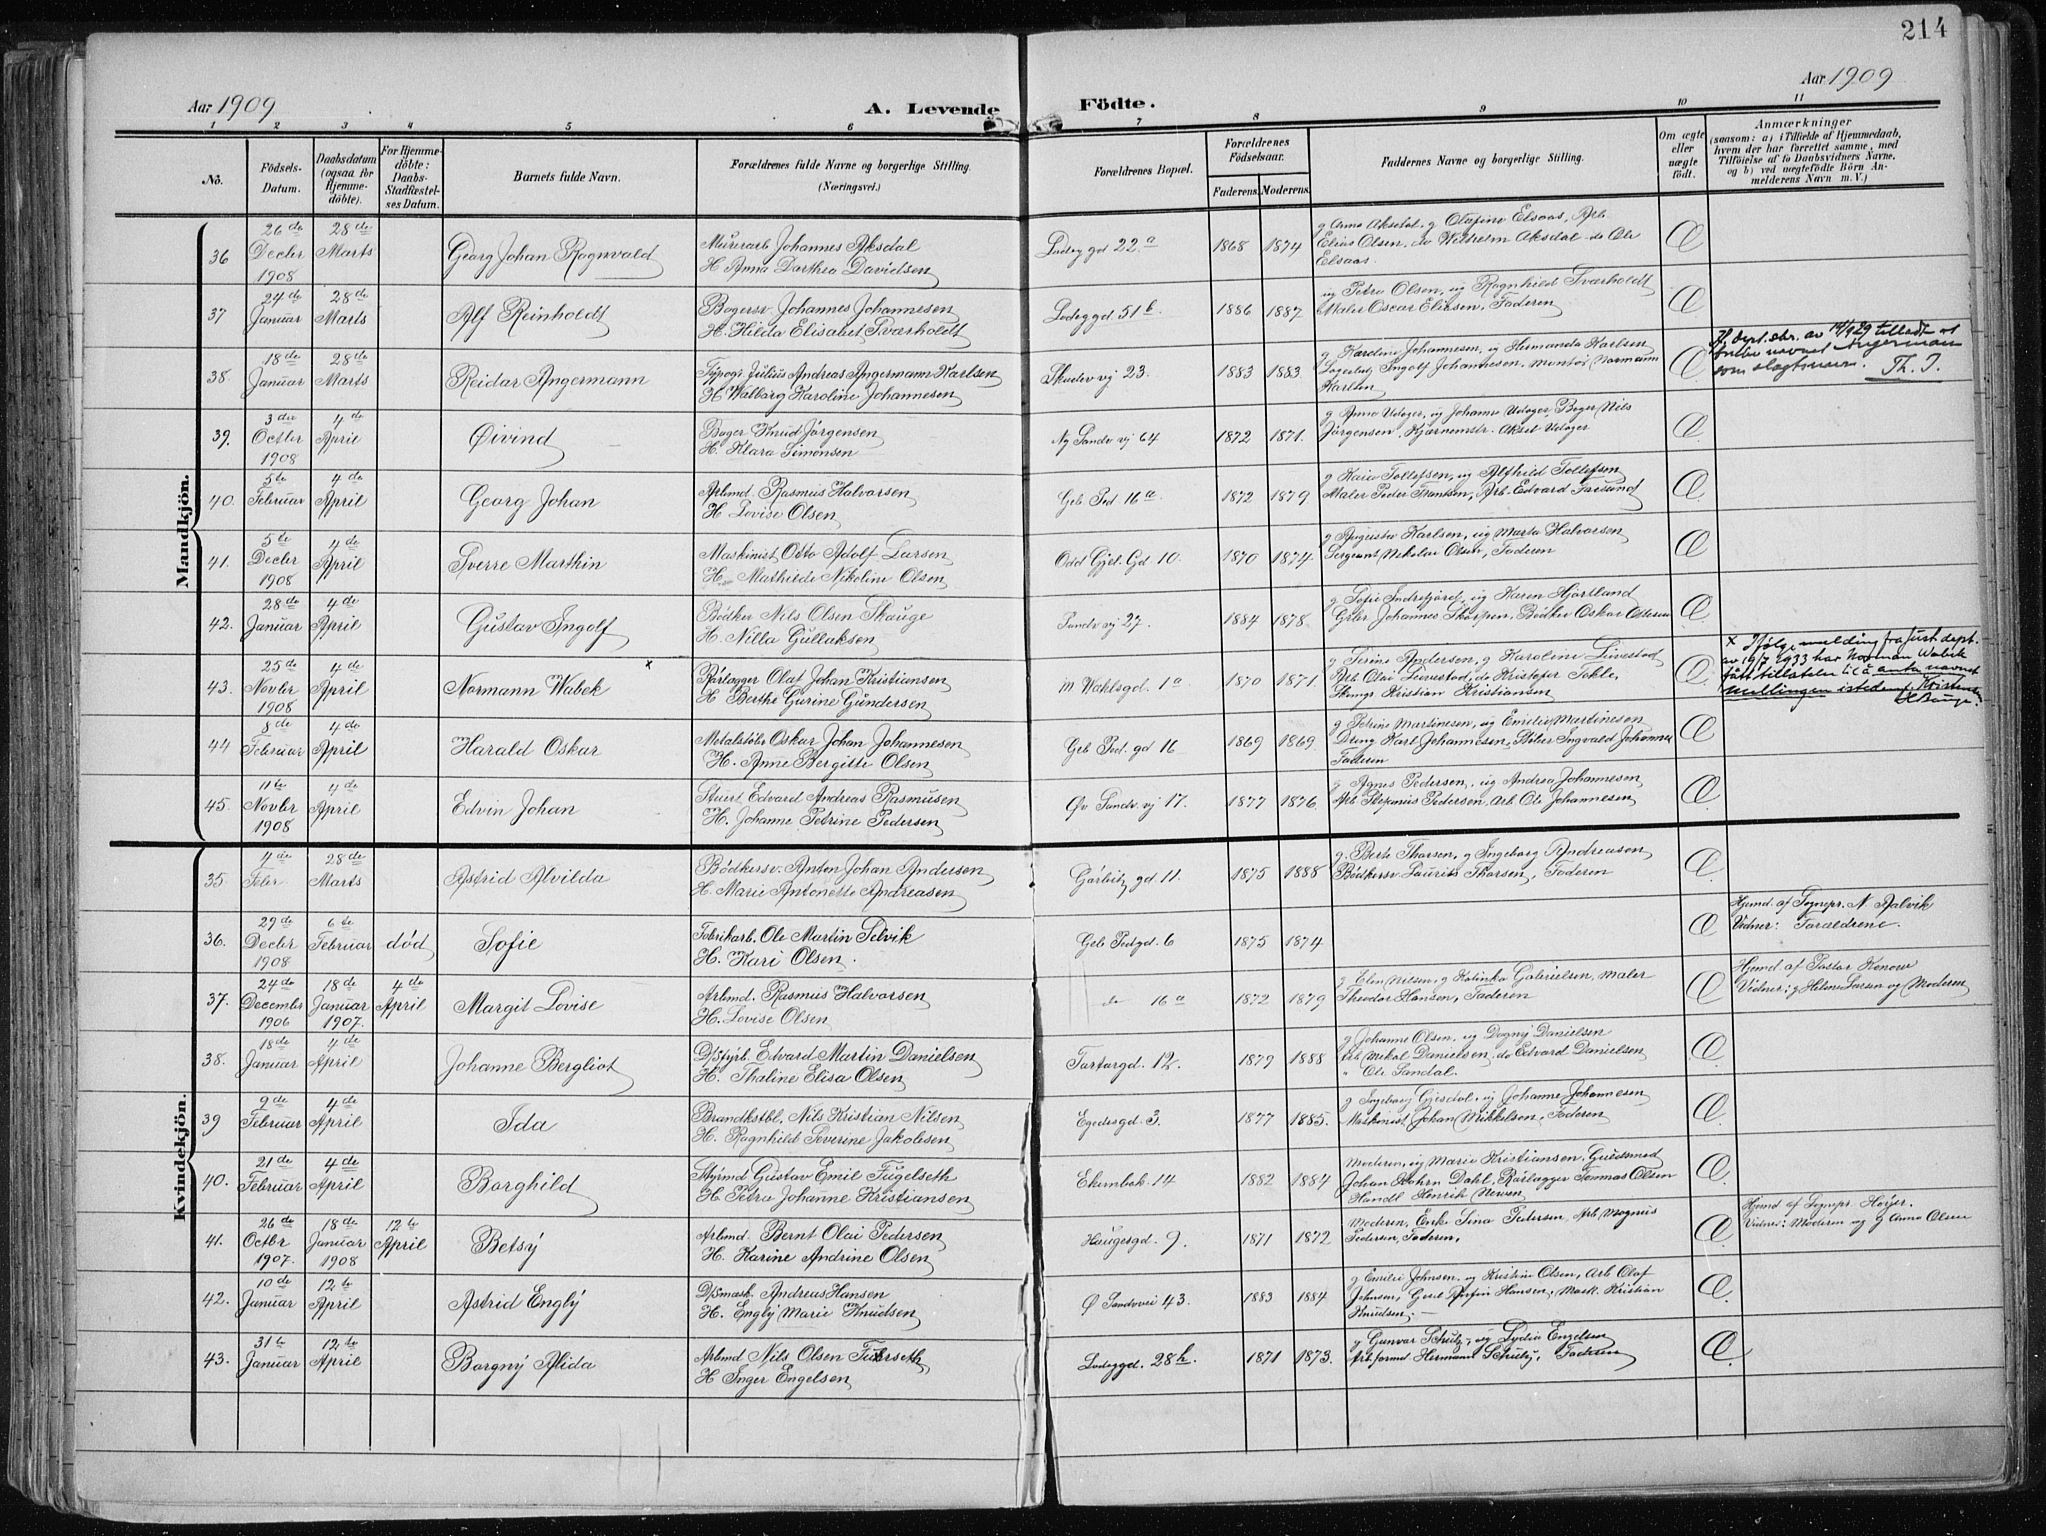 214
Aar 1909
A. Levende Födte.
Aar 1909
1 2 3 4 5 6 7 8 9 10 11
No.
Födsels-Datum.
Daabsdatum (ogsaa for Hjemme-döbte).
For Hjemme-döbte: Daabs-Stadfæstel-ses Datum.
Barnets fulde Navn.
Forældrenes fulde Navne og borgerlige Stilling. (Næringsvei.)
Forældrenes Bopæl.
Forældrenes Födselsaar.
Faderens. Moderens.
Faddernes Navne og borgerlige Stilling.
Om ægte eller uægte födt.
Anmærkninger
(saasom: a) i Tilfælde af Hjemmedaab, hvem der har forrettet samme, med Tilföielse af to Daabsvidners Navne, og b) ved uægtefödte Börn An-melderens Navn m. V.)
Mandkjön.
36 26de Decbr 1908 28de Marts Georg Johan Ragnvald Murerarb Johannes Aksdal
H. Anna Dorthea Davidsen 22a 1868 1874 g Anna Aksdal, g Olafine Elsaas, Arb.
Elias Olsen, do Wilhelm Aksdal do Ole
Elsaas.
37 24de Januar 28de Marts Alf Reinholdt Bagersv. Johannes Johannesen
H. Hilda Elisabet Sværholdt 51b 1886 1887 ug Petra Olsen, ug Ragnhild Sværholdt
Maler Oscar Eliksen, Faderen
38. 18de Januar 28de Marts Reidar Angermann Typogr Julius Andreas Angermann Karlsen
H Walborg Karoline Johannesen Skudev vj 23. 1883 1883 g Karoline Johannesen, ug Hermanda Karlsen
Ingolf Johannesen, Montør Normann
Karlsen
Jf. dept. skr. av 14/9 29 tilladt at
navnet Angerman
som slegtsnavn. Th. J.
39. 3die Octbr 1908 4de April Øivind Bager Knud Jörgensen
H. Klara Simonsen Ny Sandv vj 64 1872 1871. g Anna Udøger, ug Johanne Udøger, Bager Nils
Jörgensen, Aksel Udøger
40. 5te Februar 4de April Georg Johan Arbmd. Rasmus Halvorsen
H Lovise Olsen Geb Ped 16a 1872 1879 g Karie Tollefsen, ug Alfhild Tollefsen
Maler Peder Arb. Edvard
41. 5te Decbr 1908 4de April Sverre Marthin Maskinist Otto Adolf Larsen
H. Mathilde Nikoline Olsen Odd Gjel. Gd 10. 1870 1874. g Augusta Karlsen, ug Marta Halvorsen
Sergeant Nikolai Olsen, Faderen
42. 28de Januar 4de April Gustav Ingolf Bödker Nils Olsen Skauge
H. Nilla Gullaksen Sandv vj 27. 1884 1878. g Sofie Indrefjord, ug Karen Hjorsland
Johannes Bødker Oskar Ottesen
43. 25de Novbr 1908 4de April Normann Wabek x Rörlægger Olaf Johan Kristiansen
H Berthe Gurine Gundersen M Wahlsgd. 1a 1870 1871. g Serine Andersen, g Karoline Livestad
Arb Olai Livestad, do Kristofer Tokle,
Kristian Kristiansen
x Ifølge melding fra Just. dept.
av 19/7 1933 har Norman Wabek
fått tillatelse til å anta navnet
Mellingen istedenf. Kristensen
44 8de Februar 4de April Harald Oskar Metalstöber Oskar Johan Johannesen
H. Anne Bergitte Olsen Geb Ped. gd 16 1869 1869 g Petrine Martinesen, ug Emilie Martinesen
Dreng Karl Johannesen, Ingvald Johannes
Faderen
45. 11te Novbr 1908 4de April Edvin Johan Stuert Edvard Andreas Rasmusen
H. Johanne Petrine Pedersen Øv Sandv. vj 17. 1877 1876 g Agnes Pedersen, ug Andrea Johannesen
Arb Stefanius Pedersen, Arb Ole Johannesen
Kvindekjön.
35. 4de Febr 28de Marts Astrid Alvilda Bödkersv. Anton Johan Andersen
H. Marie Antonette Andreasen gd 11. 1875 1888 g. Berte Thorsen, g Ingeborg Andreasen
Bödkersv Laurits Thorsen, Faderen
36. 29de Decbr 1908 6te Februar død Sofie Fabrikarb. Ole Martin Selvik
H. Kari Olsen. Geb Pedgd. 6 1875 1874
Hjemd. af Sognepr. N. Aalvik
Vidner: Forældrene.
37. 24de December 1906 18de Januar 1907. 4de April Margit Lovise Arbmd. Rasmus Halvorsen
H. Lovise Olsen do 16a 1872 1879 g Elen Nilsen, g Katinka Gabrielsen, Maler
Theodor Hansen, Faderen
Hjemd af Pastor Konow
Vidner: g Helene Larsen og Moderen
38. 18de Januar 4de April Johanne Bergliot D/sfyrb. Edvard Martin Danielsen
H. Thaline Elisa Olsen Tartargd. 12. 1879 1888 g Johanne Olsen, ug Dagny Danielsen
Arb Mikal Danielsen, do Edvard Danielsen
" Ole Sandal.
39 9de Februar 4de April Ida Brandkstbl. Nils Kristian Nilsen
H. Ragnhild Severine Jakobsen Egedesgd 3. 1877 1885. g Ingeborg Gjesdal, ug Johanne Johannesen
Maskinist Johan Mikkelsen, Faderen
40. 21de Februar 4de April Borghild Styrmd Gustav Emil Fugelseth
H. Petra Johanne Kristiansen Ekernbak 14 1882 1884 Moderen, ug Marie Kristiansen, Guldsmed
Johan Dahl, Rørlægger Tommas Olsen
Handl Henrik
41. 26de Octbr 1907. 18de Januar 1908 12te April Betsy Arbmd Bernt Olai Pedersen
H. Karine Andrine Olsen Haugesgd. 9. 1871 1872 Moderen, Enke Sina Pedersen, Arb. Magnus
Pedersen, Faderen,
Hjemd af Sognepr
Vidner: Moderen og g Anna Olsen
42. 10de Januar 12te April Astrid Engly D/smask. Andreas Hansen
H. Engly Marie Knudsen Ø Sandvvei 43. 1883 1884 g Emilie Johnsen, ug Kristine Olsen, Arb Olaf
Johnsen, Hansen, Mask. Kristian
Knudsen,
43. 31te Januar 12te April Borgny Alida Arbmd Nils Olsen
H Inger Engelsen 28b. 1871 1873. g Gunvar Schulz, ug Lydia Engelsen
Arbformd Hermann Schulz, Faderen